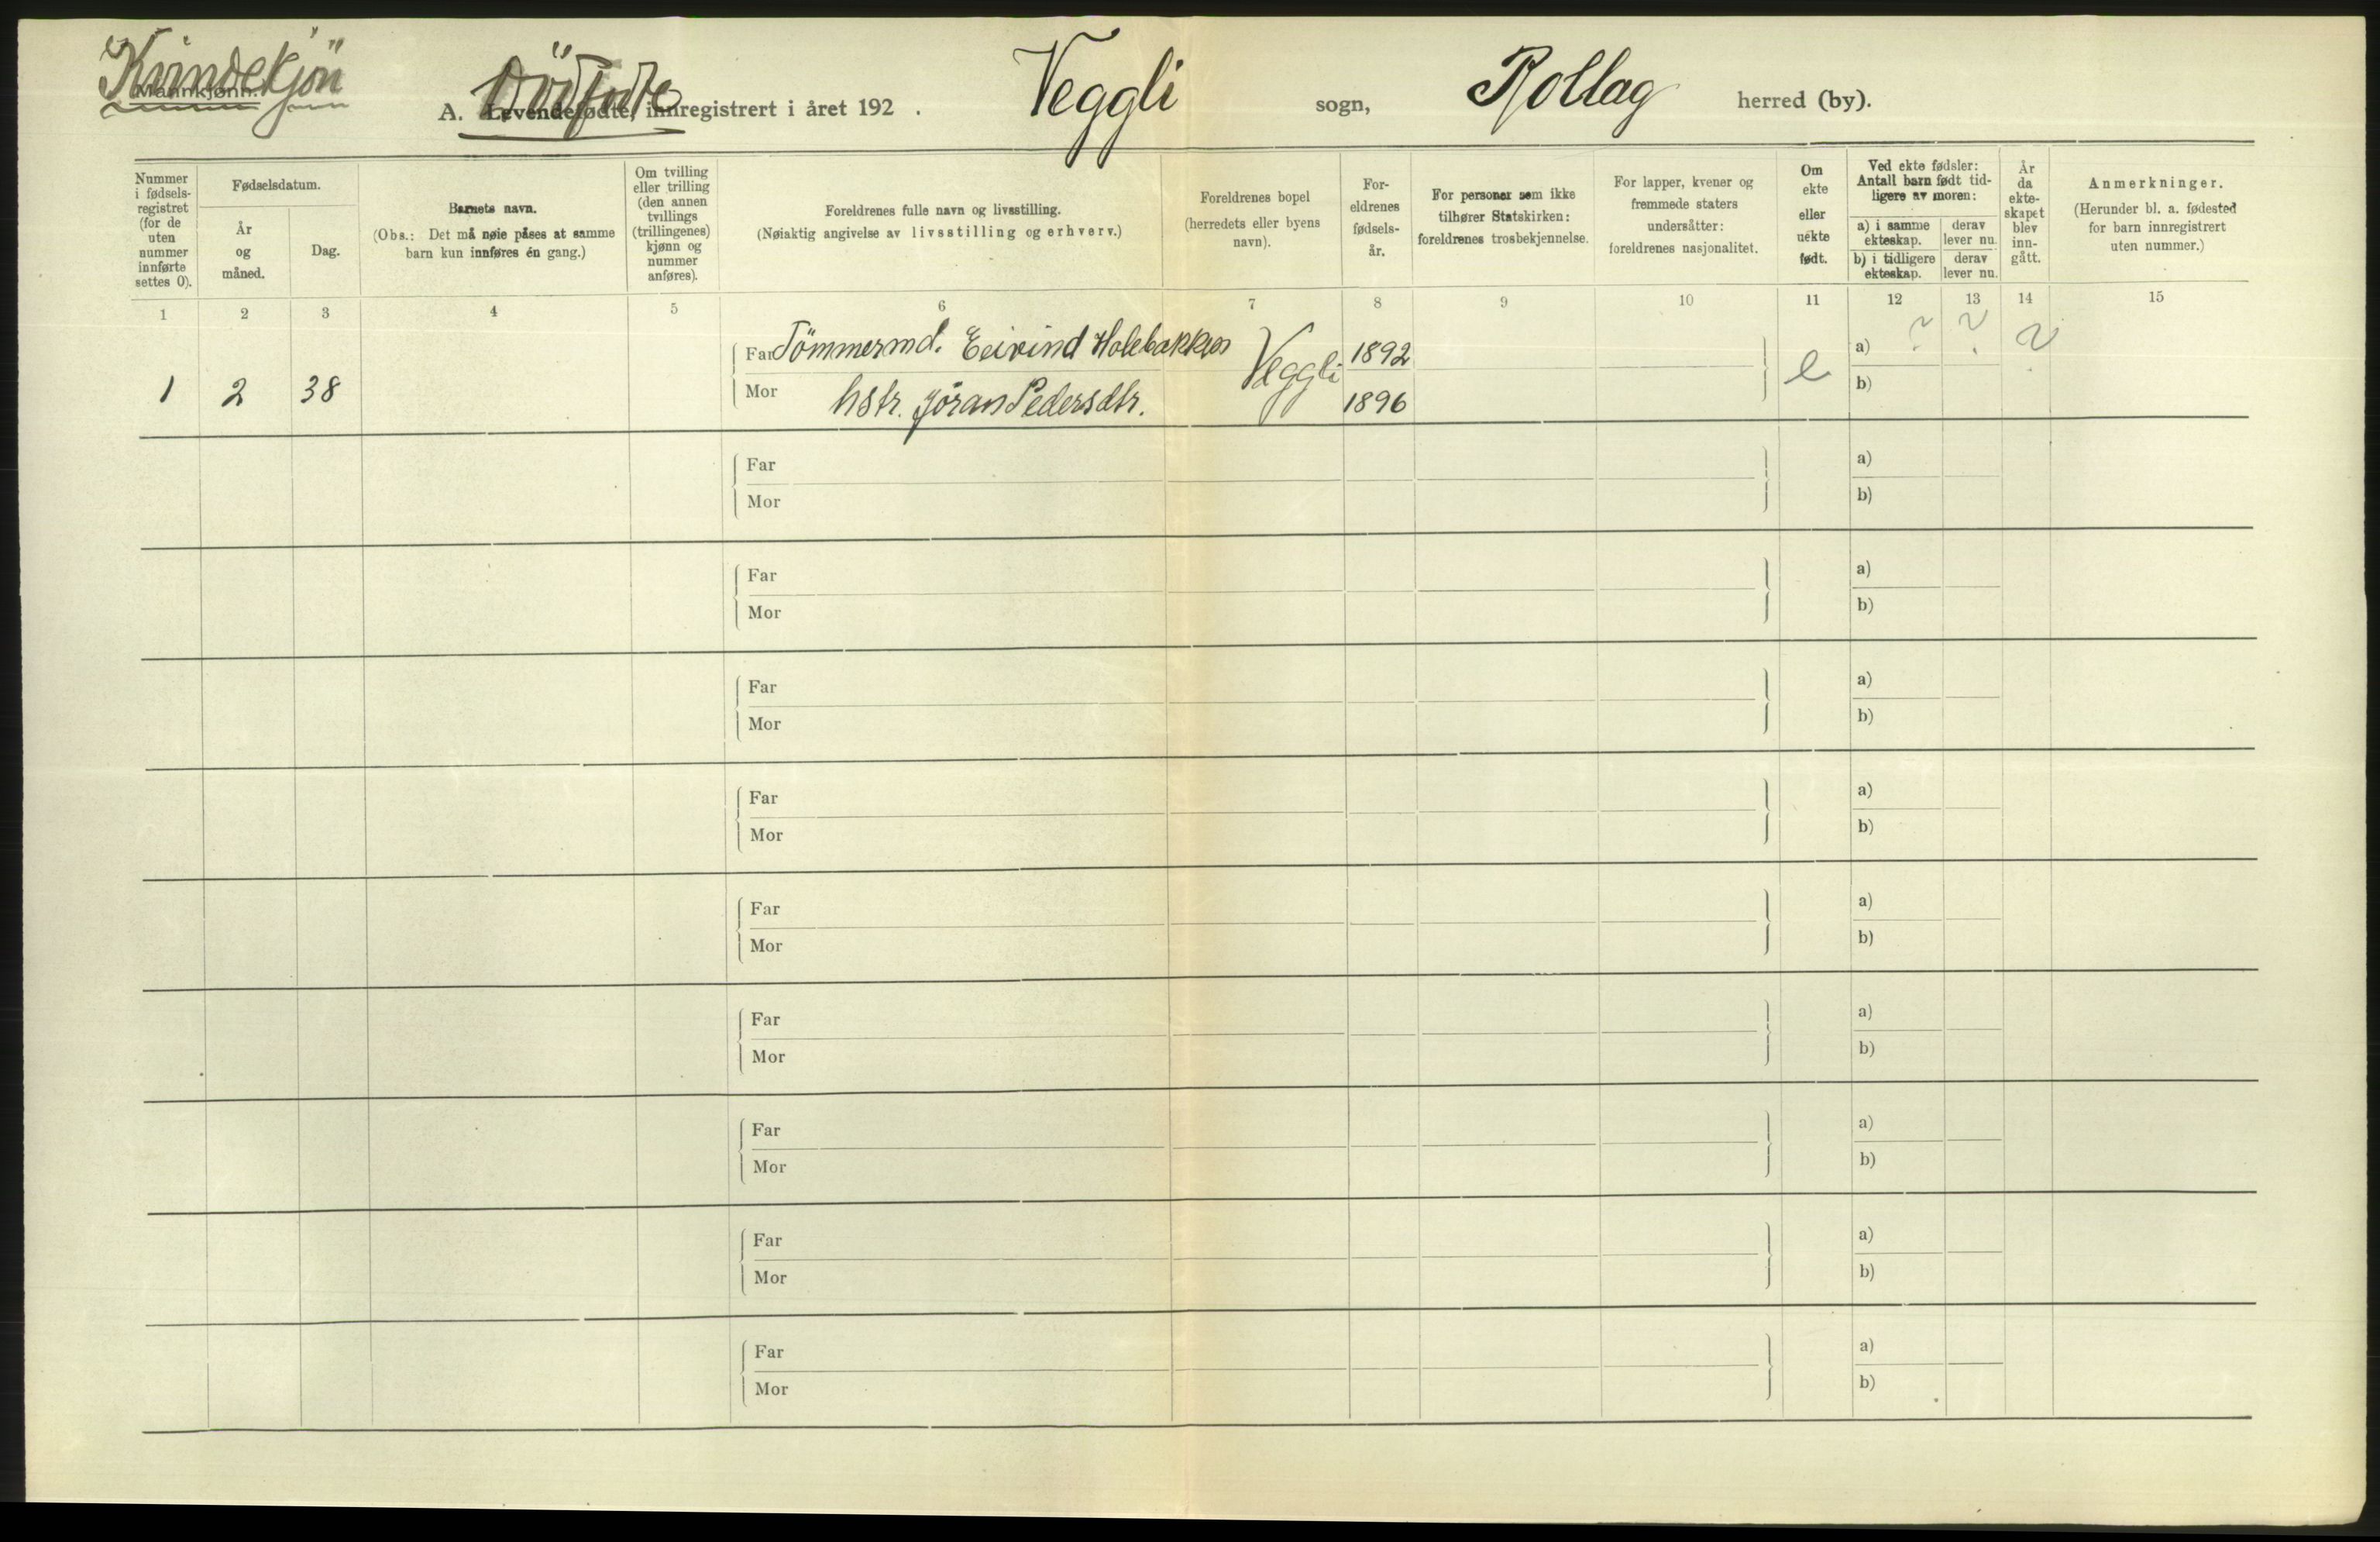 Kvindekjön
Mannkjønn.
Dödfødte
A. Levendefødte, innregistrert i året 192 . Veggli sogn, Rollag herred (by).
Nummer i fødsels-registret (for de uten nummer innførte settes 0).
Fødselsdatum.
År og måned.
Dag.
Barnets navn.
(Obs.: Det må nøie påses at samme barn kun innføres én gang.)
Om tvilling eller trilling (den annen tvillings (trillingenes) kjønn og nummer anføres).
Foreldrenes fulle navn og livsstilling.
(Nøiaktig angivelse av livsstilling og erhverv.)
Foreldrenes bopel (herredets eller byens navn).
For-eldrenes fødsels-år.
For personer som ikke tilhører Statskirken: foreldrenes trosbekjennelse.
For lapper, kvener og fremmede staters undersåtter: foreldrenes nasjonalitet.
Om ekte eller uekte født.
Ved ekte fødsler: Antall barn født tid-ligere av moren:
a) i samme ekteskap.
derav lever nu.
b) i tidligere ekteskap.
derav lever nu.
År da ekte-skapet blev inn-gått.
Anmerkninger.
(Herunder bl. a. fødested for barn innregistrert uten nummer.)
1 2 3 4 5 6 7 8 9 10 11 12 13 14 15
Far Tömmermd. Eivind Holebakken Veggli 1892 e a) ? ? ?
1 2 38 Mor hstr. Jöran Pedersdtr. 1896 b)
Far a)
Mor b)
Far a)
Mor b)
Far a)
Mor b)
Far a)
Mor b)
Far a)
Mor b)
Far a)
Mor b)
Far a)
Mor b)
Far a)
Mor b)
Far a)
Mor b)